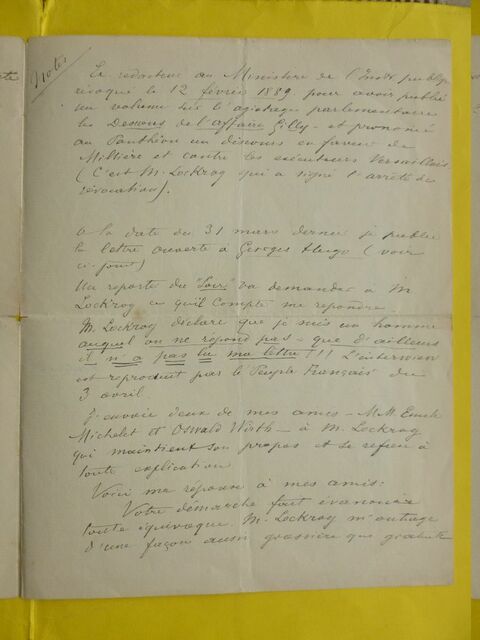 Notes
Ex rédacteur au Ministère de l'Instr publique
révoqué le 12 février 1889, pour avoir publié
un volume sur l'agiotage parlementaire
les Dessous de l'affaire Gilly - et prononcé
au Panthéon un discours en faveur de
Millière et contre les exécuteurs Versaillais.
(C'est M. Lockroy qui a signé l'arrêté de
révocation).
A la date du 31 mars dernier je publie
la lettre ouverte à Georges Hugo (voir
ci-joint)
Un reporter du "Soir" va demander à M
Lockroy ce qu'il compte me répondre.
M. Lockroy déclare que je suis un homme
auquel on ne répond pas - que d'ailleurs
il n'a pas lu ma lettre!!! L'interview
est reproduit par le Peuple Français du
3 avril.
J'envoie deux de mes amis - MM Emile
Michelet et Oswald Wirth - à M. Lockroy
qui maintient son propos et se refuse à
toute explication
Voici ma réponse à mes amis:
Votre démarche fait évanouir
toute équivoque. M. Lockroy m'outrage
d'une façon aussi grossière que gratuite